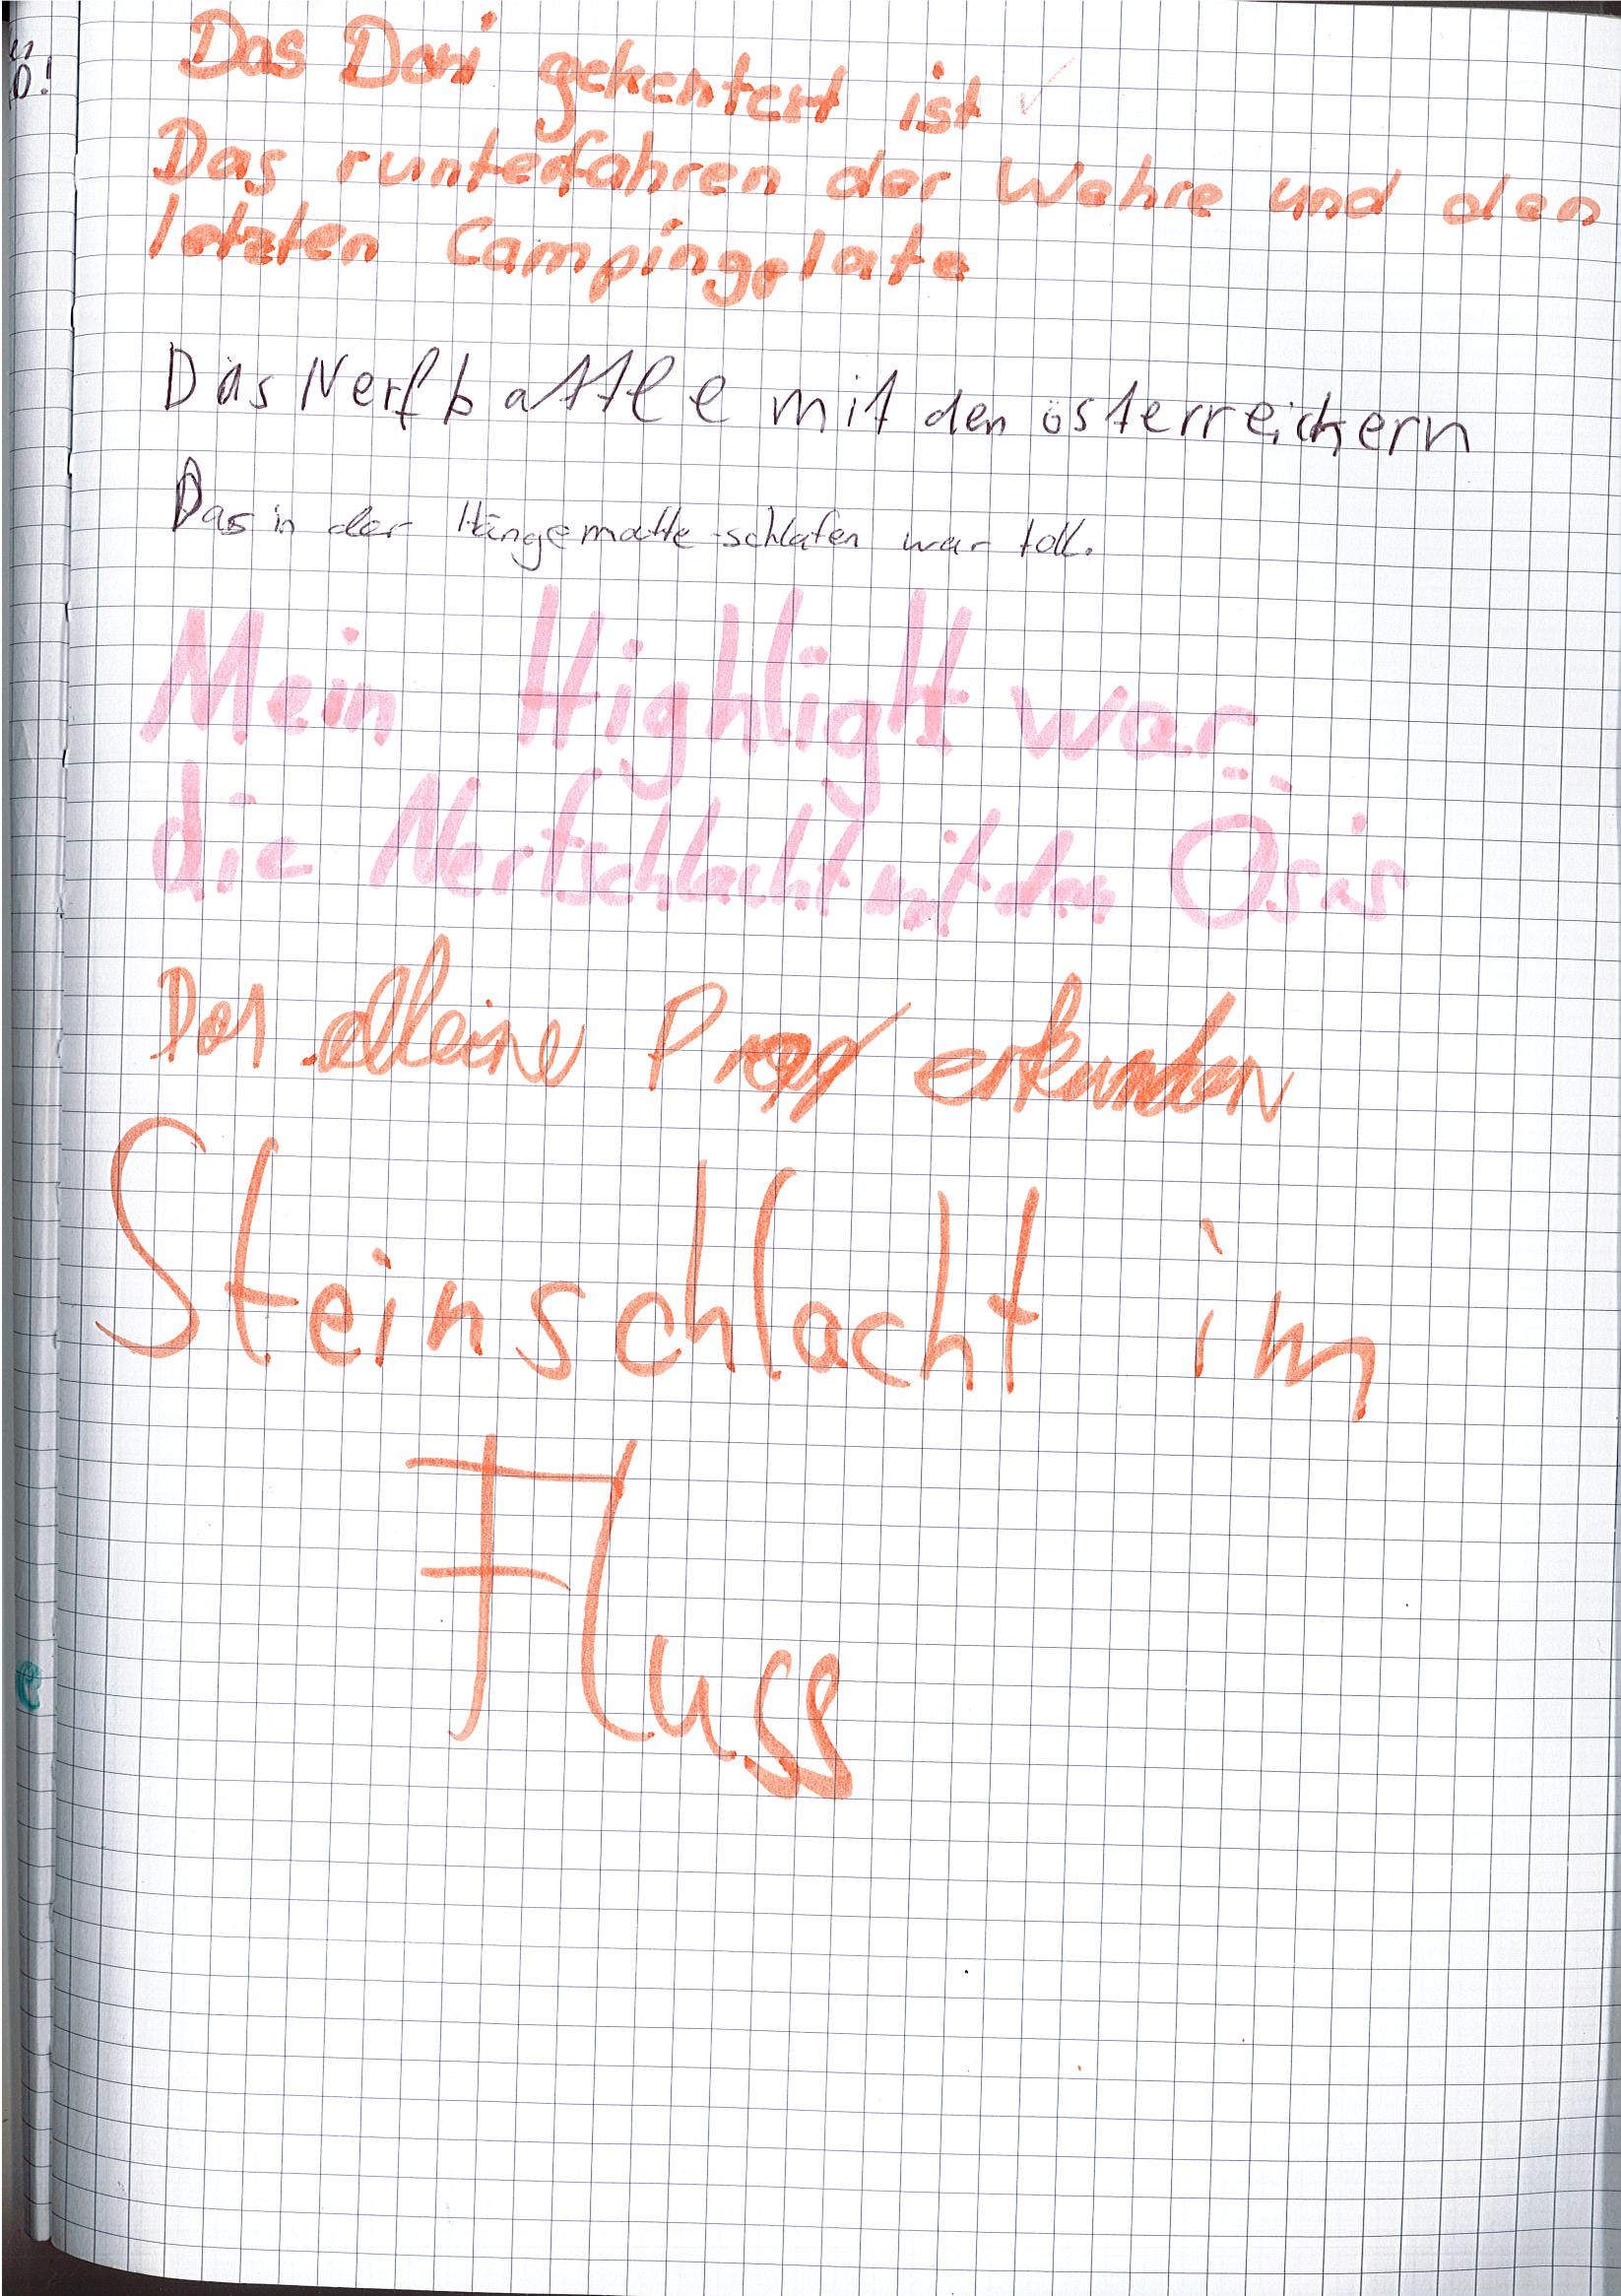 Das Dani gekentert ist
Das runterfahren der Wehre und den
letzten Campingplatz
Das Nerfbattle mit den österreichern
Das in der Hängematte schlafen war toll.
Mein Highlight war
die Nerfschlacht mit den Ösis
Das alleine Prag erkunden
Steinschlacht im
Fluss